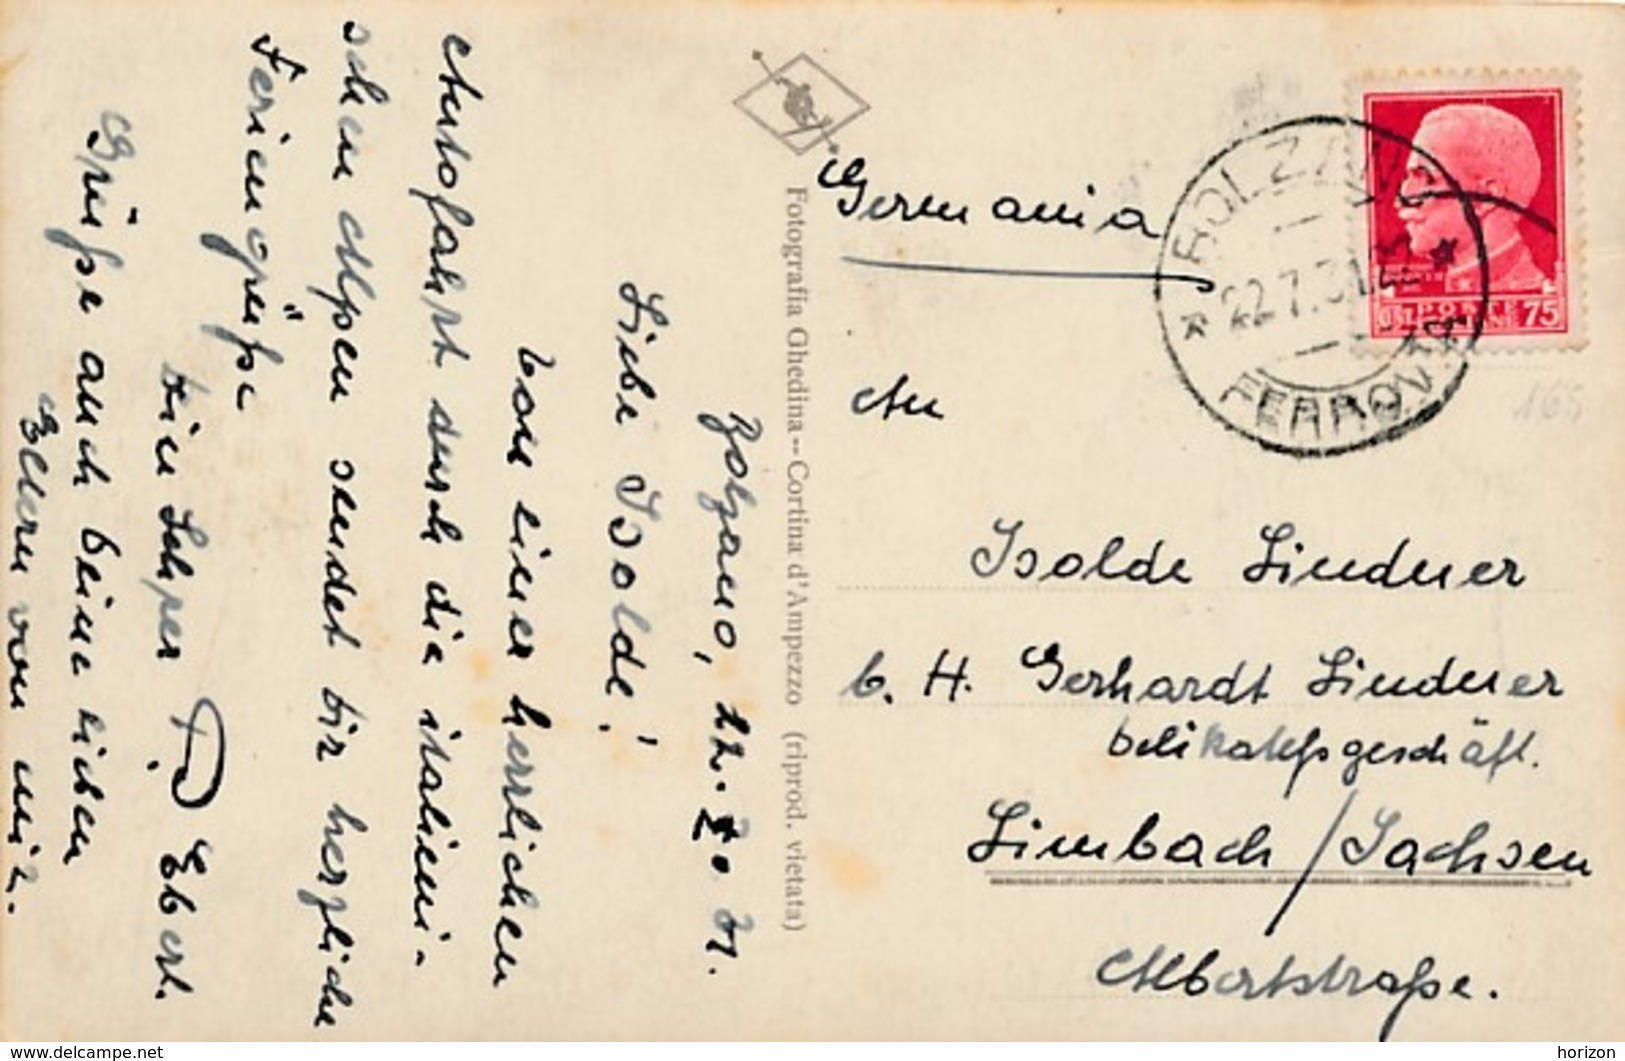 Bolzano, 22. 7. 31.
Liebe Isolde!
Von einer herrlichen
Autofahrt durch die italieni-
schen Alpen sendet Dir herzliche
Feriengrüße
Dein Lehrer P. Ebert.
Grüße auch Deine lieben
Eltern von mir.
Fotografia Ghedina--Cortina d'Ampezzo (riprod. vietata)
Germania
BOLZANO
22.7.31.22
FERROVIA
POSTE
ITALIANE
CENT 75
165
An
Isolde Lindner
b. H. Gerhardt Lindner
Delikateßgeschäft.
Limbach/Sachsen
Albertstraße.
www.delcampe.net
horizon